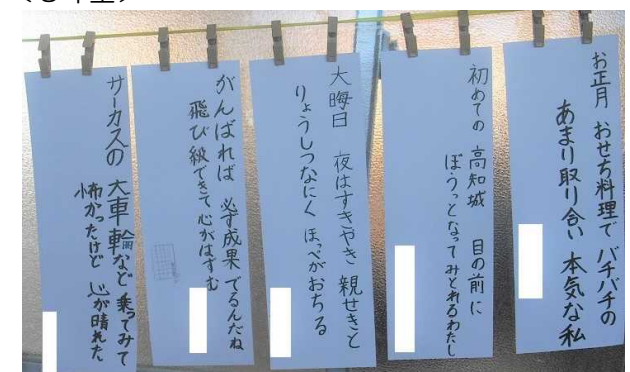 お正月 おせち料理で バチバチの
あまり取り合い 本気な私
初めての 高知城 目の前に
ぼうっとなって みとれるわたし
大晦日 夜はすきやき 親せきと
りょうしつなにく ほっぺがおちる
がんばれば 必ず成果 でるんだね
飛び級できて 心がはずむ
サーカスの 大車輪など 乗ってみて
怖かったけど 心が晴れた